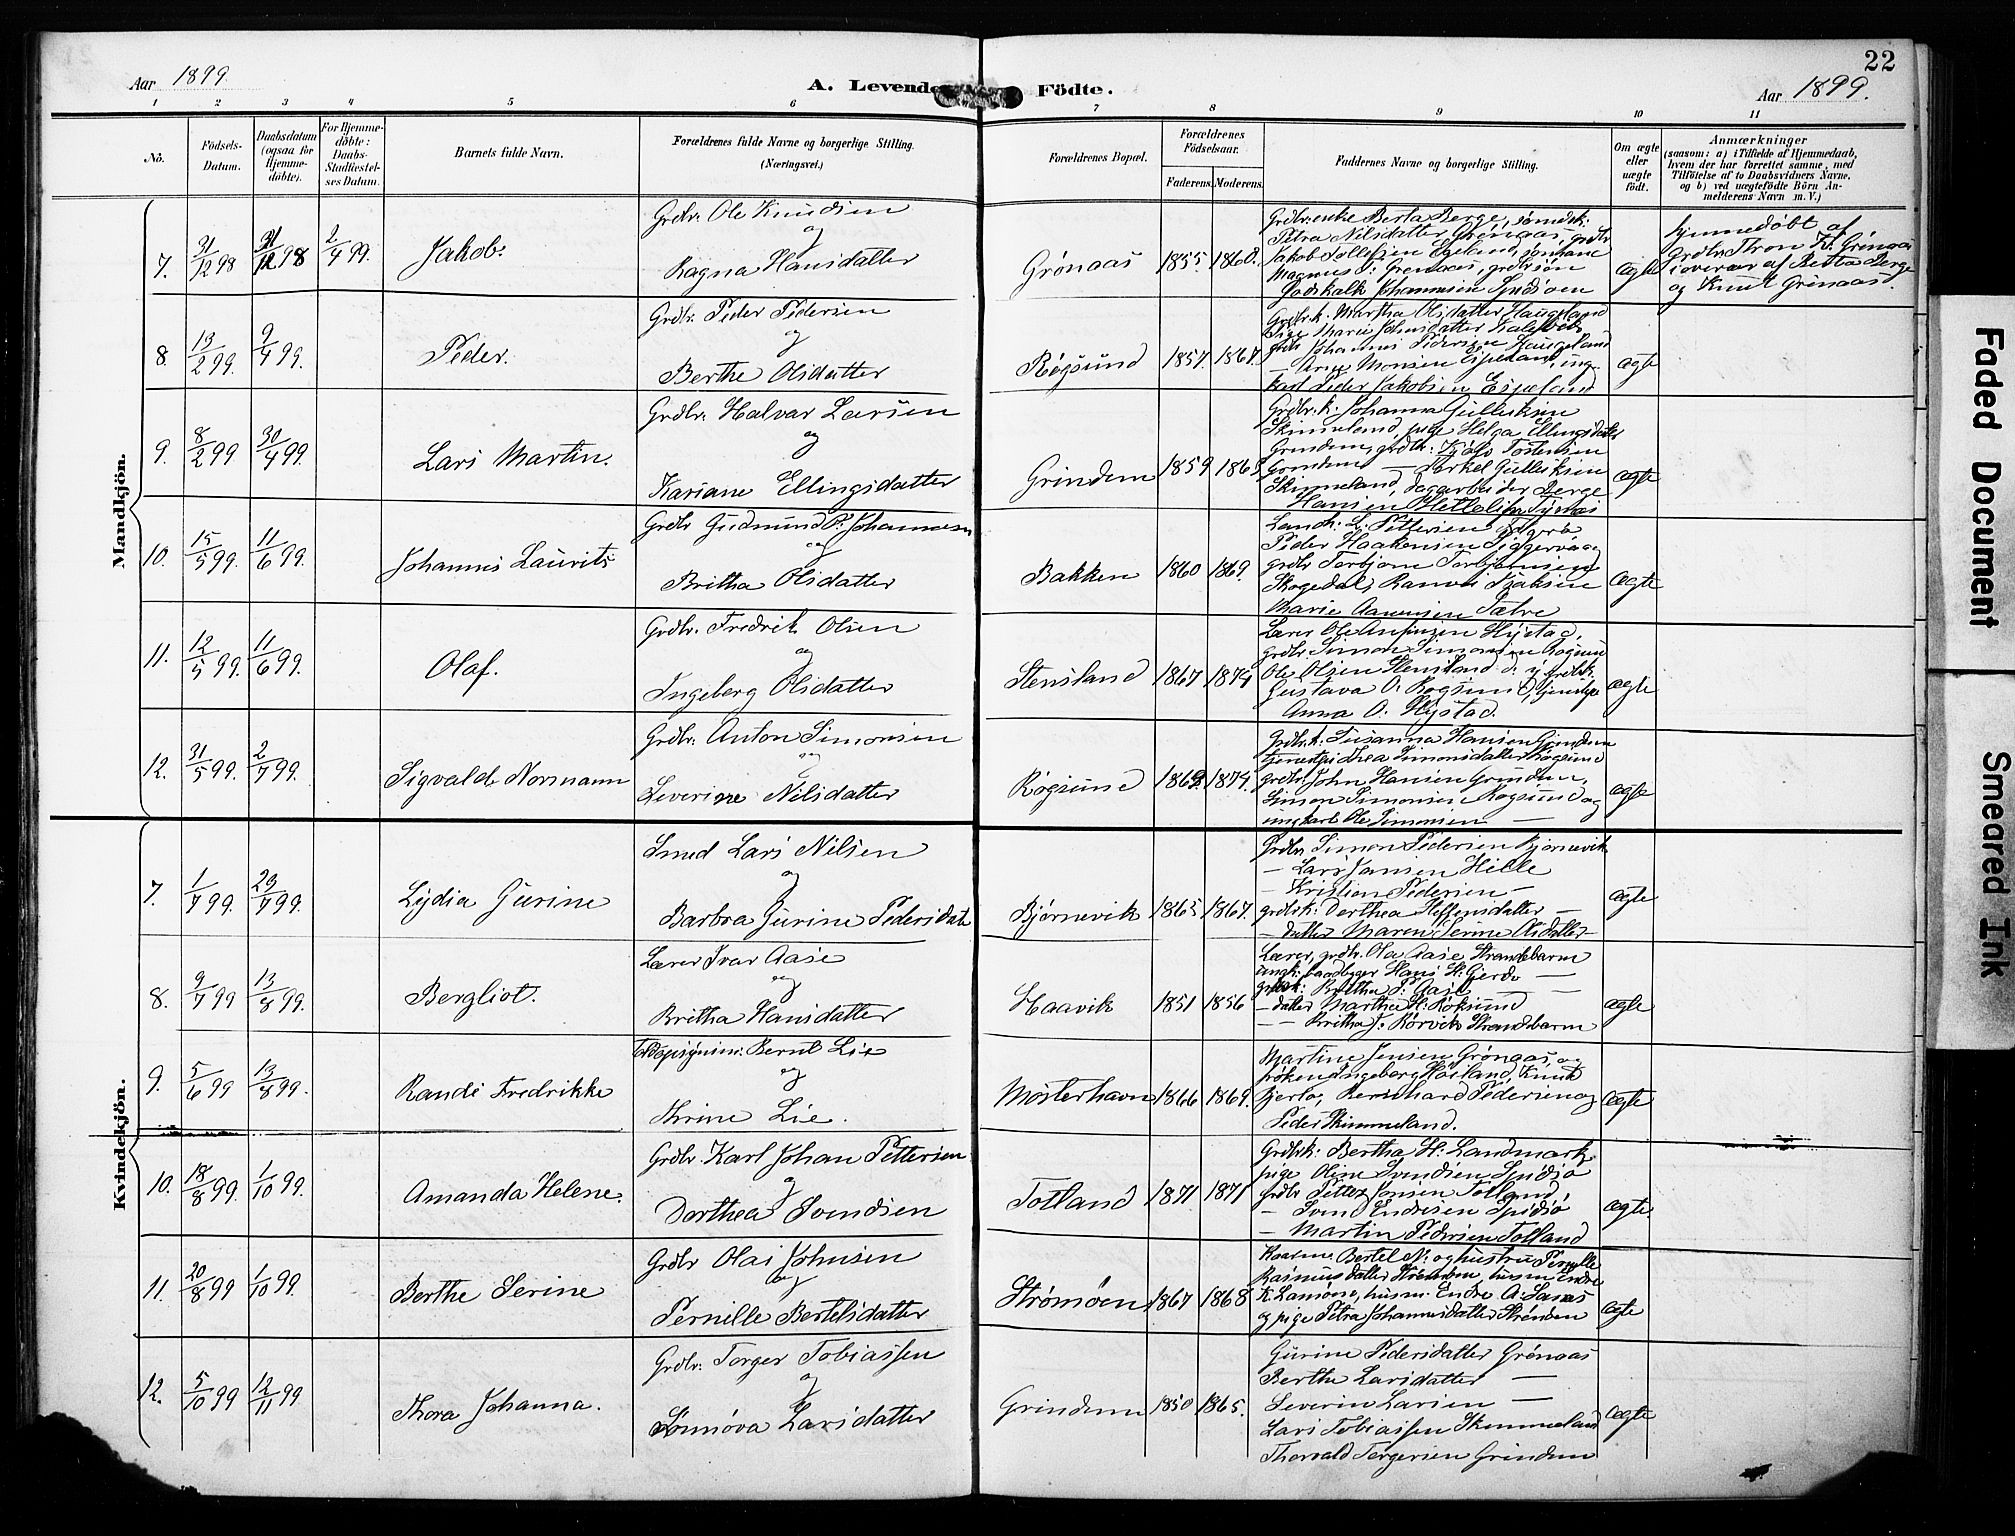 22
Aar 1899.
A. Levende Födte.
Aar 1899.
1 2 3 4 5 6 7 8 9 10 11
No.
Födsels-
Datum.
Daabsdatum
(ogsaa for
Hjemme-
döbte).
For Hjemme-
döbte:
Daabs-
Stadfæstel-
ses Datum.
Barnets fulde Navn.
Forældrenes fulde Navne og borgerlige Stilling.
(Næringsvei.)
Forældrenes Bopæl.
Forældrenes
Födselsaar.
Faderens. Moderens.
Faddernes Navne og borgerlige Stilling.
Om ægte
eller
uægte
født.
Anmærkninger
(saasom: a) i Tilfælde af Hjemmedaab,
hvem der har forrettet samme, med
Tilföielse af to Daabsvidners Navne,
og b) ved uægtefödte Börn An-
melderens Navn m. V.)
Mandkjön.
7. 31/12 98 31/12 98 2/4 99. Jakob.
Grdbr. Ole Knudsen
og
Ragna Hansdatter
Grönaas 1855. 1860.
Grdbr.enke Berta Berge,
Petra Nilsdatter Grönaas, grdbr
Jakob Tollefsen Egeland,
Magnus Grönaas, grdbrsön
Godskalk Johannesen Spidsöen
ægte
hjemmedøbt af
grdbr. Thron K. Grönaas
i overvær af Berta Berge
og Knut Grönaas.
8. 13/2 99. 9/4 99. Peder.
Grdbr. Peder Pedersen
og
Berthe Olsdatter
Røgsund 1857. 1867.
Grdbr.k. Martha Olsdatter Haugeland
Pige Marie Johnsdatter
grdbr Johannes Pedersen Haugeland
— Arne Monsen Espeland, ung
karl Peder Jakobsen Espeland
ægte
9. 8/2 99 30/4 99. Lars Martin.
Grdbr. Halvar Larsen
og
Kariane Ellingsdatter
Grindem 1859 1863.
Grdbr.k. Johanna Gulleksen
Skimmeland, pige Helga Ellingsdatter
Grindem, grdbr. Tostensen
Grindem — Torkel Gulleksen
Skimmeland, dagarbeider Berge
Hansen
ægte
10. 15/5 99. 11/6 99. Johannes Laurits
Grdbr Gudmund P. Johannesen
og
Britha Olsdatter
Bakken 1860 1869.
Landh. L. Pettersen
Peder Haakensen Siggervaag
grdbr Torbjørn Torbjørnsen
Skogedal, Ranvei Isaksen
Marie Aanensen Sætre
ægte
11. 12/5 99. 11/6 99. Olaf.
Grdbr. Fredrik Olsen
og
Ingeborg Olsdatter
Stensland 1867 1874
Lærer Ole Hystad,
grdbr Simon Simonsen Røgsund
Ole Olsen Stensland d. y. grdbrk.
Gustava O. Rogsund,
Anna O. Hystad.
ægte
12. 31/5 99. 2/7 99. Sigvald Normann
Grdbr. Anton Simonsen
og
Severine Nilsdatter
Røgsund 1869. 1874.
Grdbr.k. Susanna Hansen Grindem
tjenestpi Thea Simonsdatter Røgsund
grdbr. John Hansen Grindem,
Simon Simonsen Røgsund og
ungkarl Ole Simonsen —
ægte
Kvindekjön.
7. 1/7 99. 23/7 99. Lydia Gurine
Smed Lars Nilsen
og
Barbra Gurine Pedersdatt
Bjørnevik 1865 1867.
Grdbr. Simon Pedersen Bjørnevik
— Lars Jansen Hille
— Kristian Pedersen —
grdbrk. Dorthea Steffensdatter —
— datter Maren Serine Olsdatter —
ægte
8. 9/7 99 13/8 99. Bergliot.
Lærer Ivar Aase
og
Britha Hansdatter
Haavik 1851 1856
Lærer, grdbr. Ola Aase Strandebarm
ungk. baadbyger Hans H. Gjerde —
grdbrk. Britha S. Aase —
— datter Martha H. Røksund
— — Britha J. Rörvik Strandbarm
ægte
9. 5/6 99 13/8 99. Randi Fredrikke
Toldopsynsm. Bernt Lie
og
Thrine Lie.
Mosterhavn 1866 1869.
Martine Jensen Grönaas og
frøken Ingeborg Høiland, Knud
Gjerlo, Bernhard Pedersen og
Peder Skimmeland.
ægte
10. 18/8 99. 1/10 99. Amanda Helene.
Grdbr. Karl Johan Pettersen
og
Dorthea Svendsen
Totland 1871 1871
Grdbrk. Bertha H. Landmark
pige Oline Svendsen Spidsø
Grdbr Petter Jonsen Totland,
— Svend Endresen Spidsø
— Martin Pedersen Totland
ægte.
11. 20/8 99 1/10 99. Berthe Serine
Grdbr Olai Johnsen
og
Pernille Bertelsdatter
Strømøen 1867 1868
Kaarm. Bertel N. og hustru Pernille
Rasmusdatter Strömöen, husm Endre
K. Lamöne, husm. Endre A. Sanas
og pige Petra Johannesdatter Strömöen
ægte
12. 5/10 99 12/11 99 Thora Johanna.
Grdbr. Torger Tobiassen
og
Sønnøva Larsdatter
Grindem 1850 1865.
Gurine Pedersdatter Grönaas
Berthe Larsdatter —
Severin Larsen —
Lars Tobiassen Skimmeland
Thorvald Torgersen Grindem
ægte
Faded Document
Smeared Ink